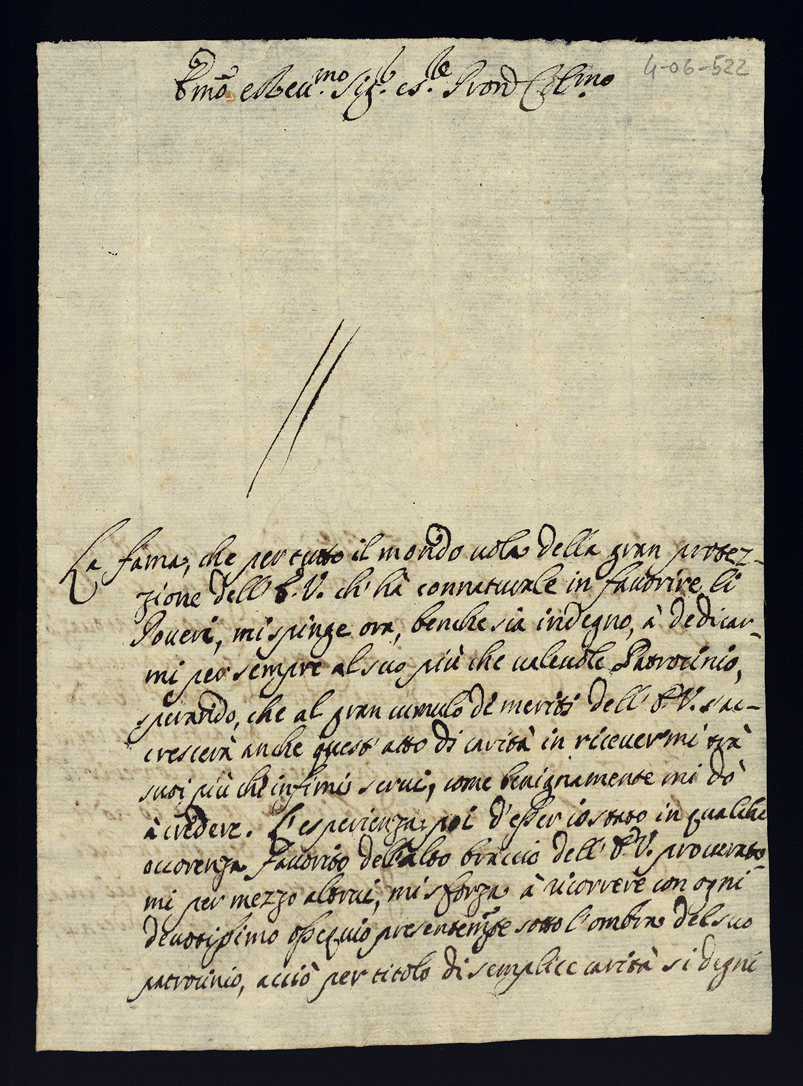 4-06-522
Emo e Reu.mo Sig.r e P.ne Pron Colmo
La fama, che per tutto il mondo uola della gran protez-
zione dell' E.V. ch' hà connaturale in fauorire li
Poueri, mi spinge ora, benche sia indegno, à dedicar-
mi per sempre al suo più che ualeuole Patrocinio,
sperando, che al gran cumulo di meriti dell' E.V. s'ac-
crescerà anche quest' atto di carità in riceuermi trà
suoi più che infimi serui, come benignamente mi dò
à credere. L'esperienza poi d'esser io stato in qualche
occorenza fauorito dell'alto braccio dell' E.V. procurato-
mi per mezzo altrui, mi sforza à ricorrere con ogni
deuotissimo ossequio presentem.te sotto l'ombra del suo
patrocinio, acciò per titolo di semplice carità si degni